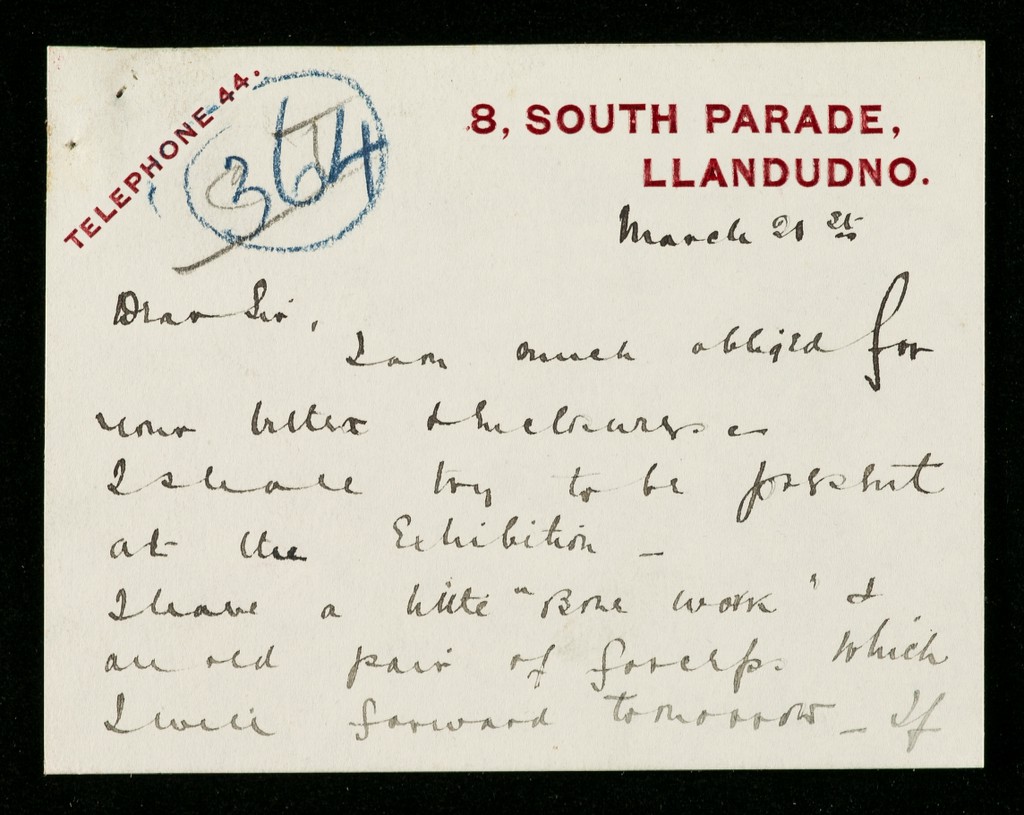 TELEPHONE 44.
364
8, SOUTH PARADE,
LLANDUDNO.
March 21st
Dear Sir,
I am much obliged for
your letter & enclosures
I shall try to be present
at the Exhibition -
I have a little "Bone work" &
an old pair of forceps. which
I will forward tomorrow - If